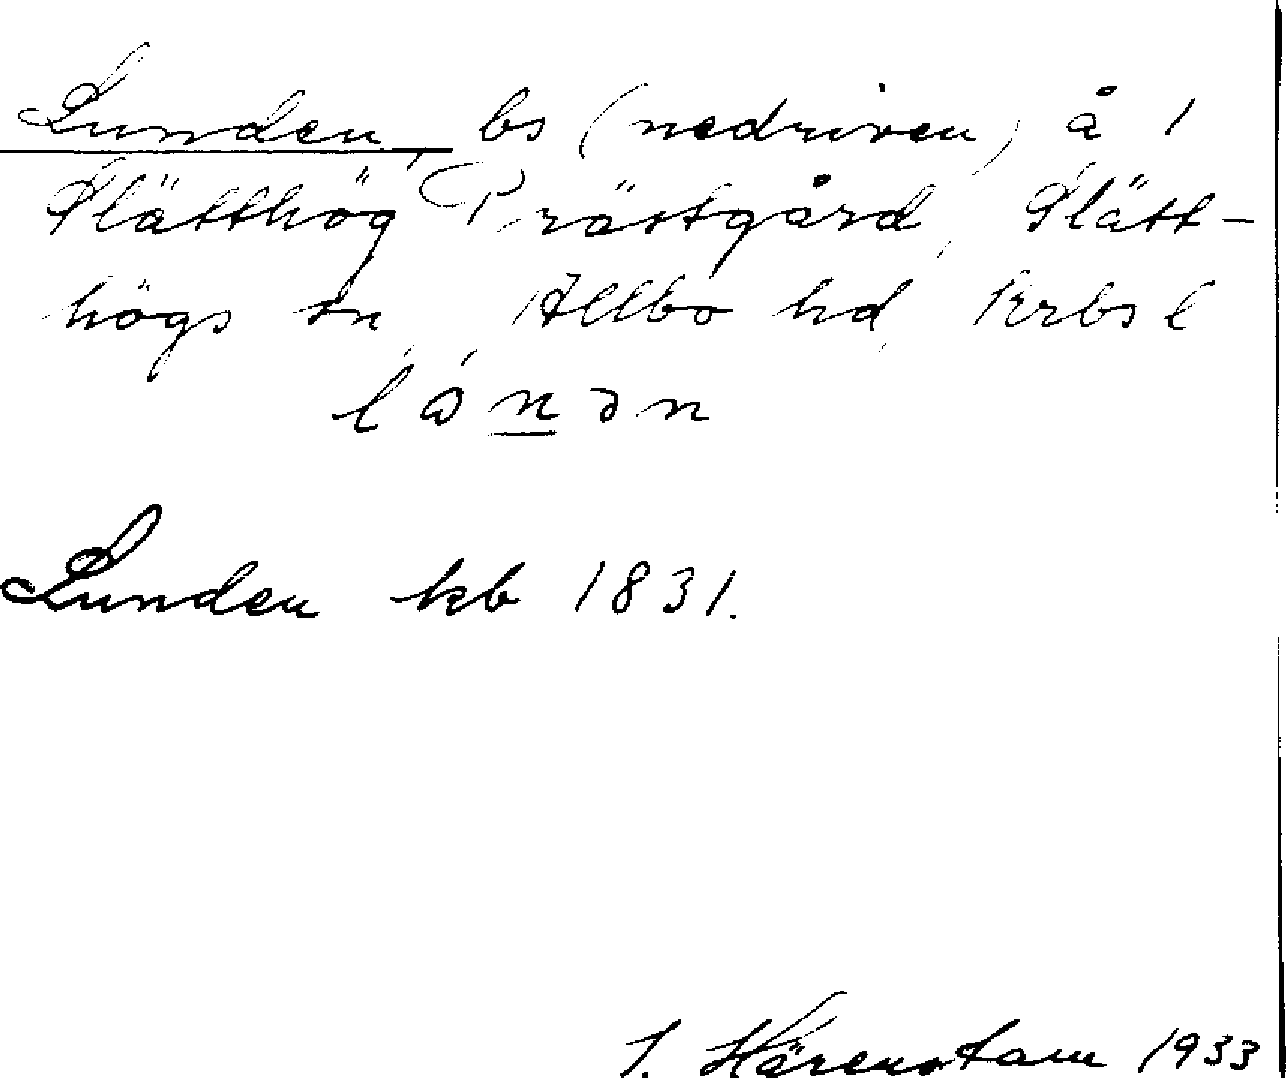 Lunden, bs (nedriven) å 1
Slätthög Prästgård, Slätt-
högs sn, Allbo hd, Krbsl
lánən
Lunden kb 1831.
J. Härenstam 1933